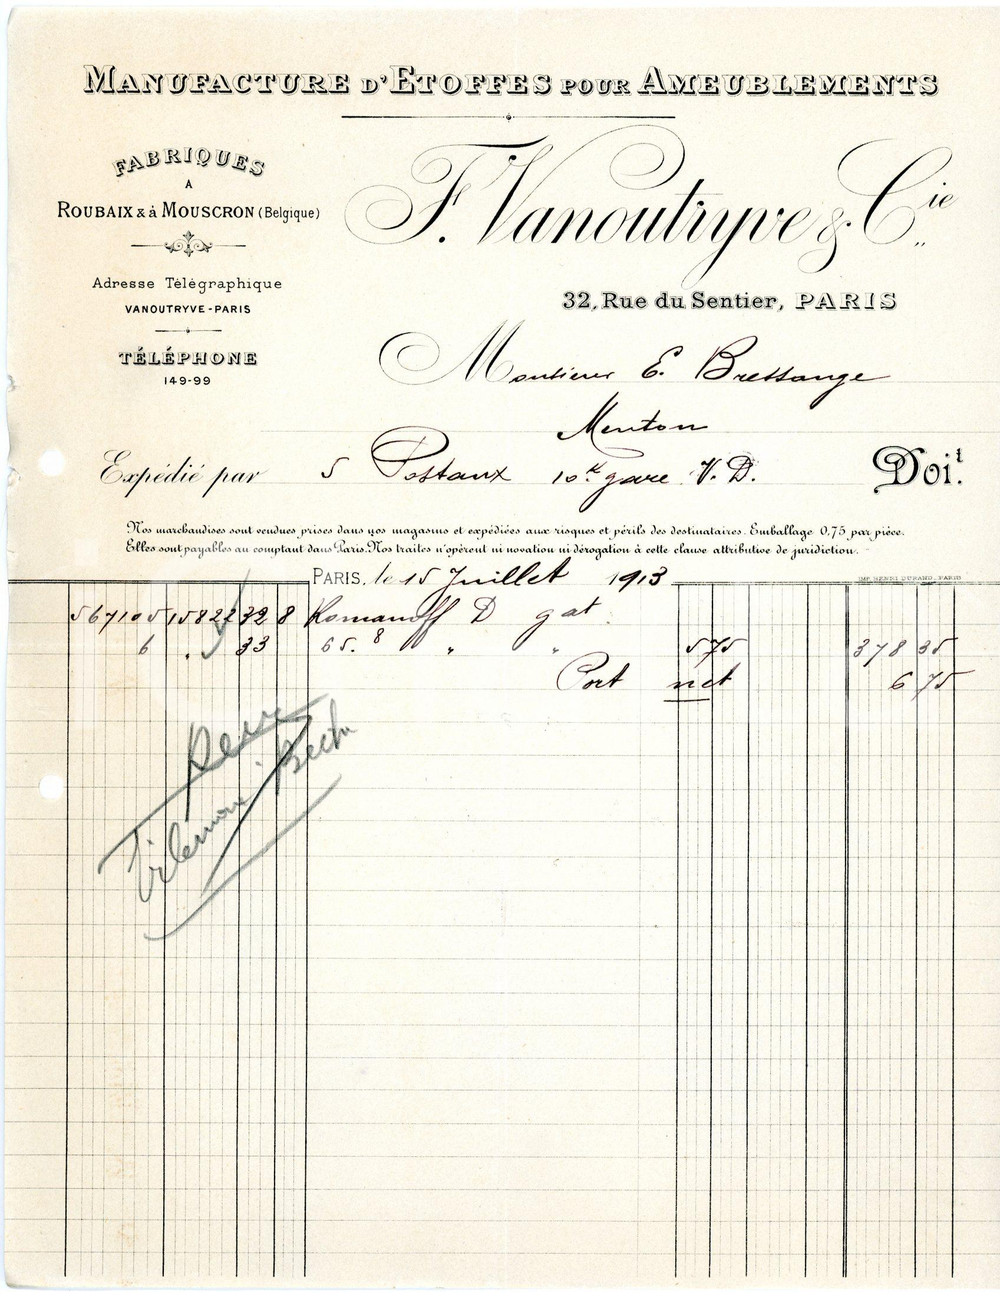 MANUFACTURE D'ETOFFES POUR AMEUBLEMENTS
FABRIQUES
A
ROUBAIX & à MOUSCRON (Belgique)
Adresse Télégraphique
VANOUTRYVE-PARIS
TÉLÉPHONE
149-99
F. Vanoutryve & Cie
32, Rue du Sentier, PARIS
Monsieur E. Bressange
Menton
Expédié par 5 Postaux 10k gare V. D. Doit.
Nos marchandises sont vendues prises dans nos magasins et expédiées aux risques et périls des destinataires. Emballage 0,75 par pièce.
Elles sont payables au comptant dans Paris. Nos traites n'opèrent ni novation ni dérogation à cette clause attributive de juridiction.
PARIS, le 15 Juillet 1913
IMP. HENRI DURAND, PARIS
567105 15822 32 8 Romanoff D gat
6 " 33 65.8 " " 575 378 35
Port net 6 75